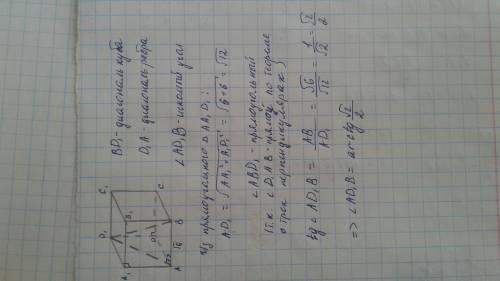 BD₁ - диагональ куба
D₁A - диагональ ребра
∠AD₁B - искомый угол
Из прямоугольного △ AA₁D₁:
AD₁ = √AA₁² + A₁D₁² = √6+6 = √12
∠ABD₁ - прямоугольный
(т.к. ∠D₁AB - прямой по теореме
о трёх перпендикулярах)
tg ∠AD₁B = AB / AD₁ = √6 / √12 = 1 / √2 = √2 / 2
=> ∠AD₁B = arctg √2 / 2
A₁
D₁
C₁
B₁
A
B
C
√6